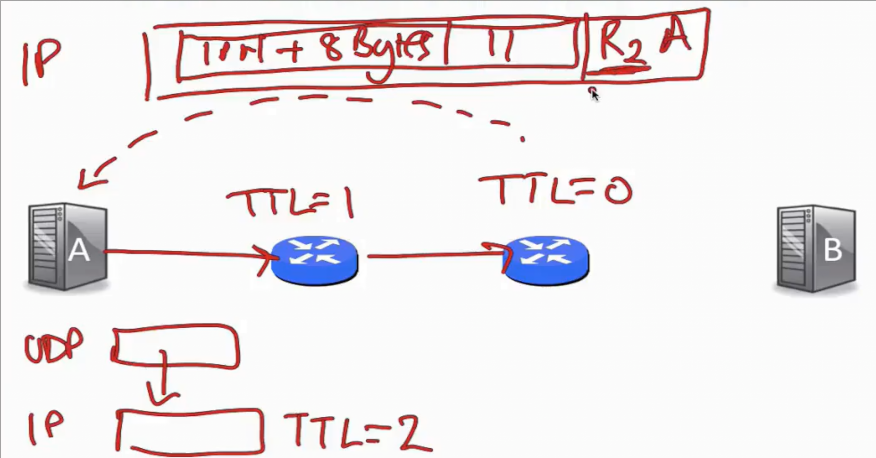 IP
IPH + 8 Bytes 11 R2 A
TTL=1 TTL=0
A B
UDP
IP TTL=2